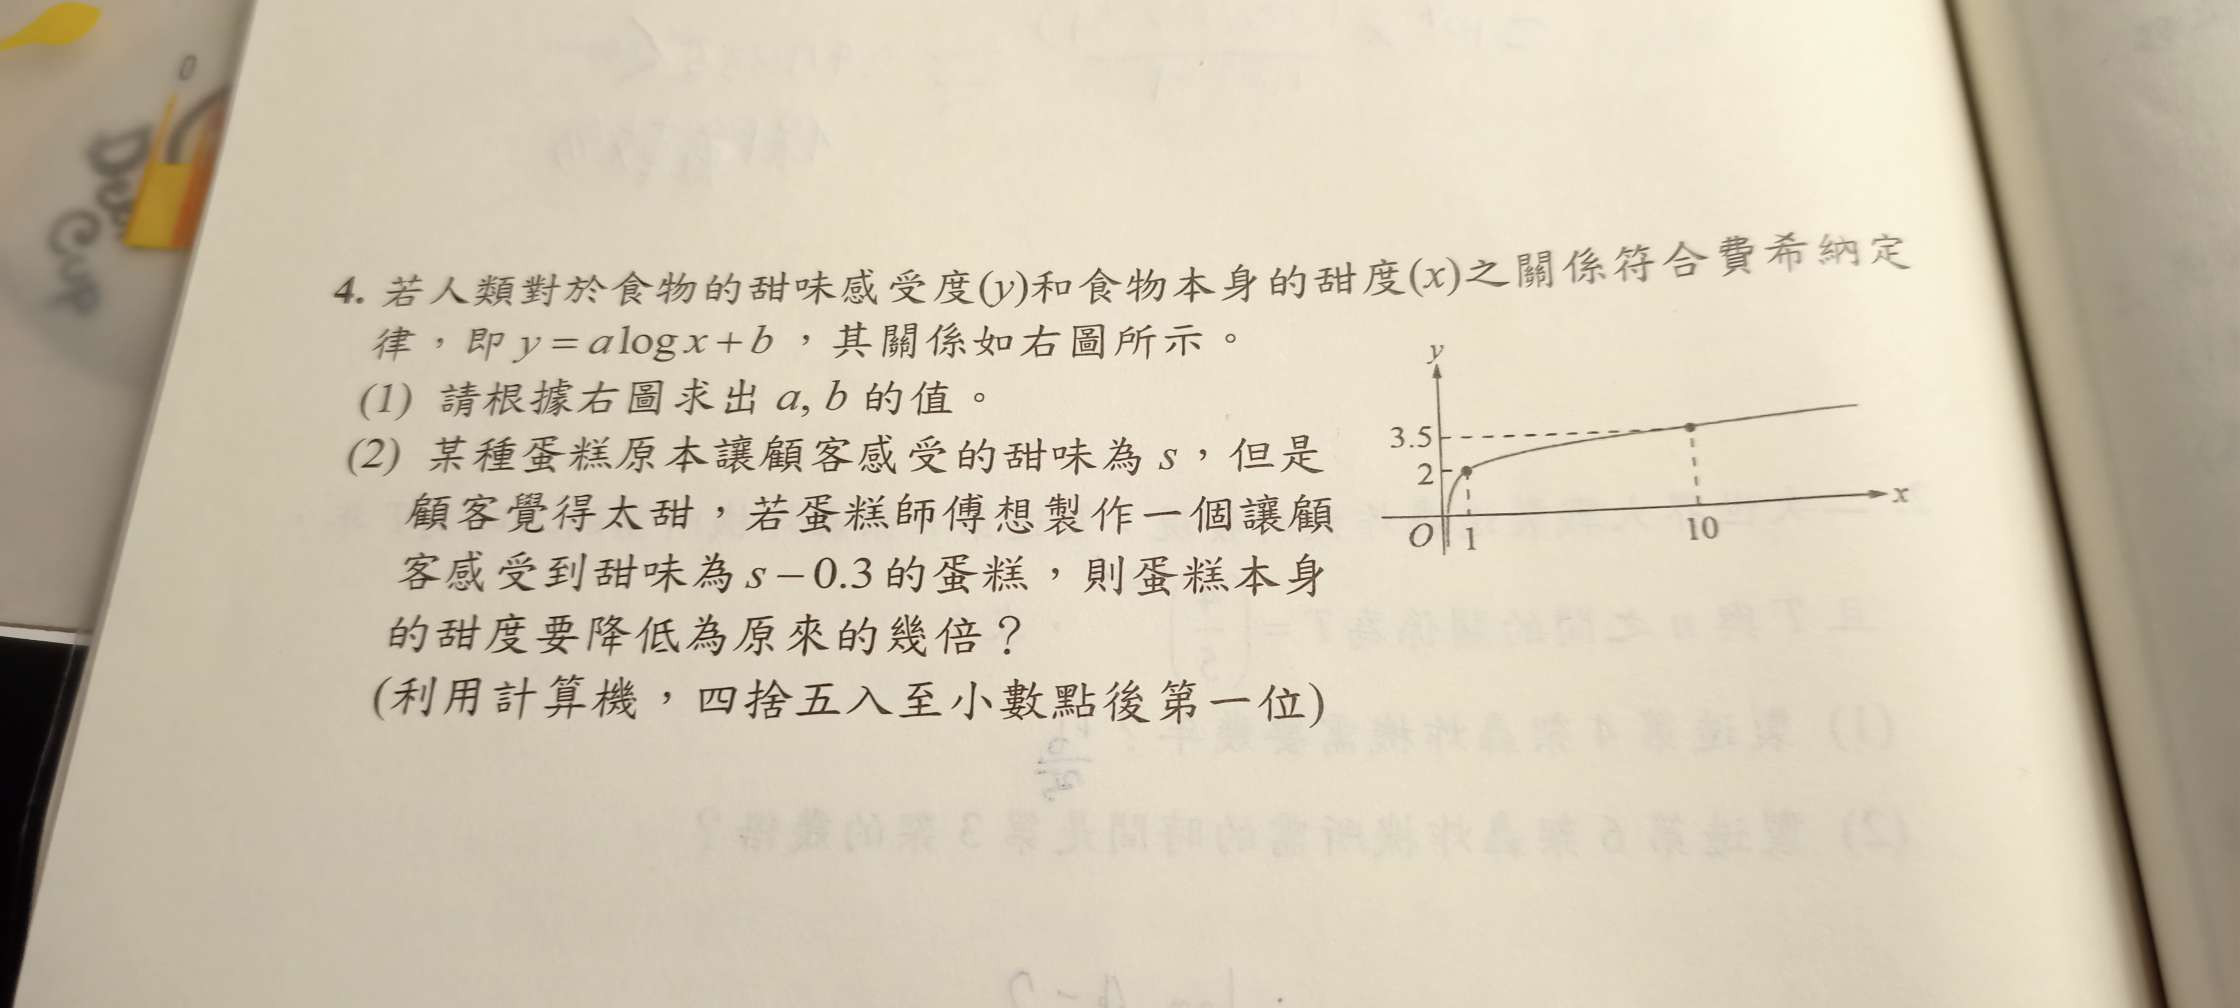 4. 若人類對於食物的甜味感受度(y)和食物本身的甜度(x)之關係符合費希納定
律，即 y = a log x + b ，其關係如右圖所示。
(1) 請根據右圖求出 a, b 的值。
(2) 某種蛋糕原本讓顧客感受的甜味為 s，但是
顧客覺得太甜，若蛋糕師傅想製作一個讓顧
客感受到甜味為 s − 0.3 的蛋糕，則蛋糕本身
的甜度要降低為原來的幾倍？
(利用計算機，四捨五入至小數點後第一位)
y
3.5
2
x
O 1 10
Cup